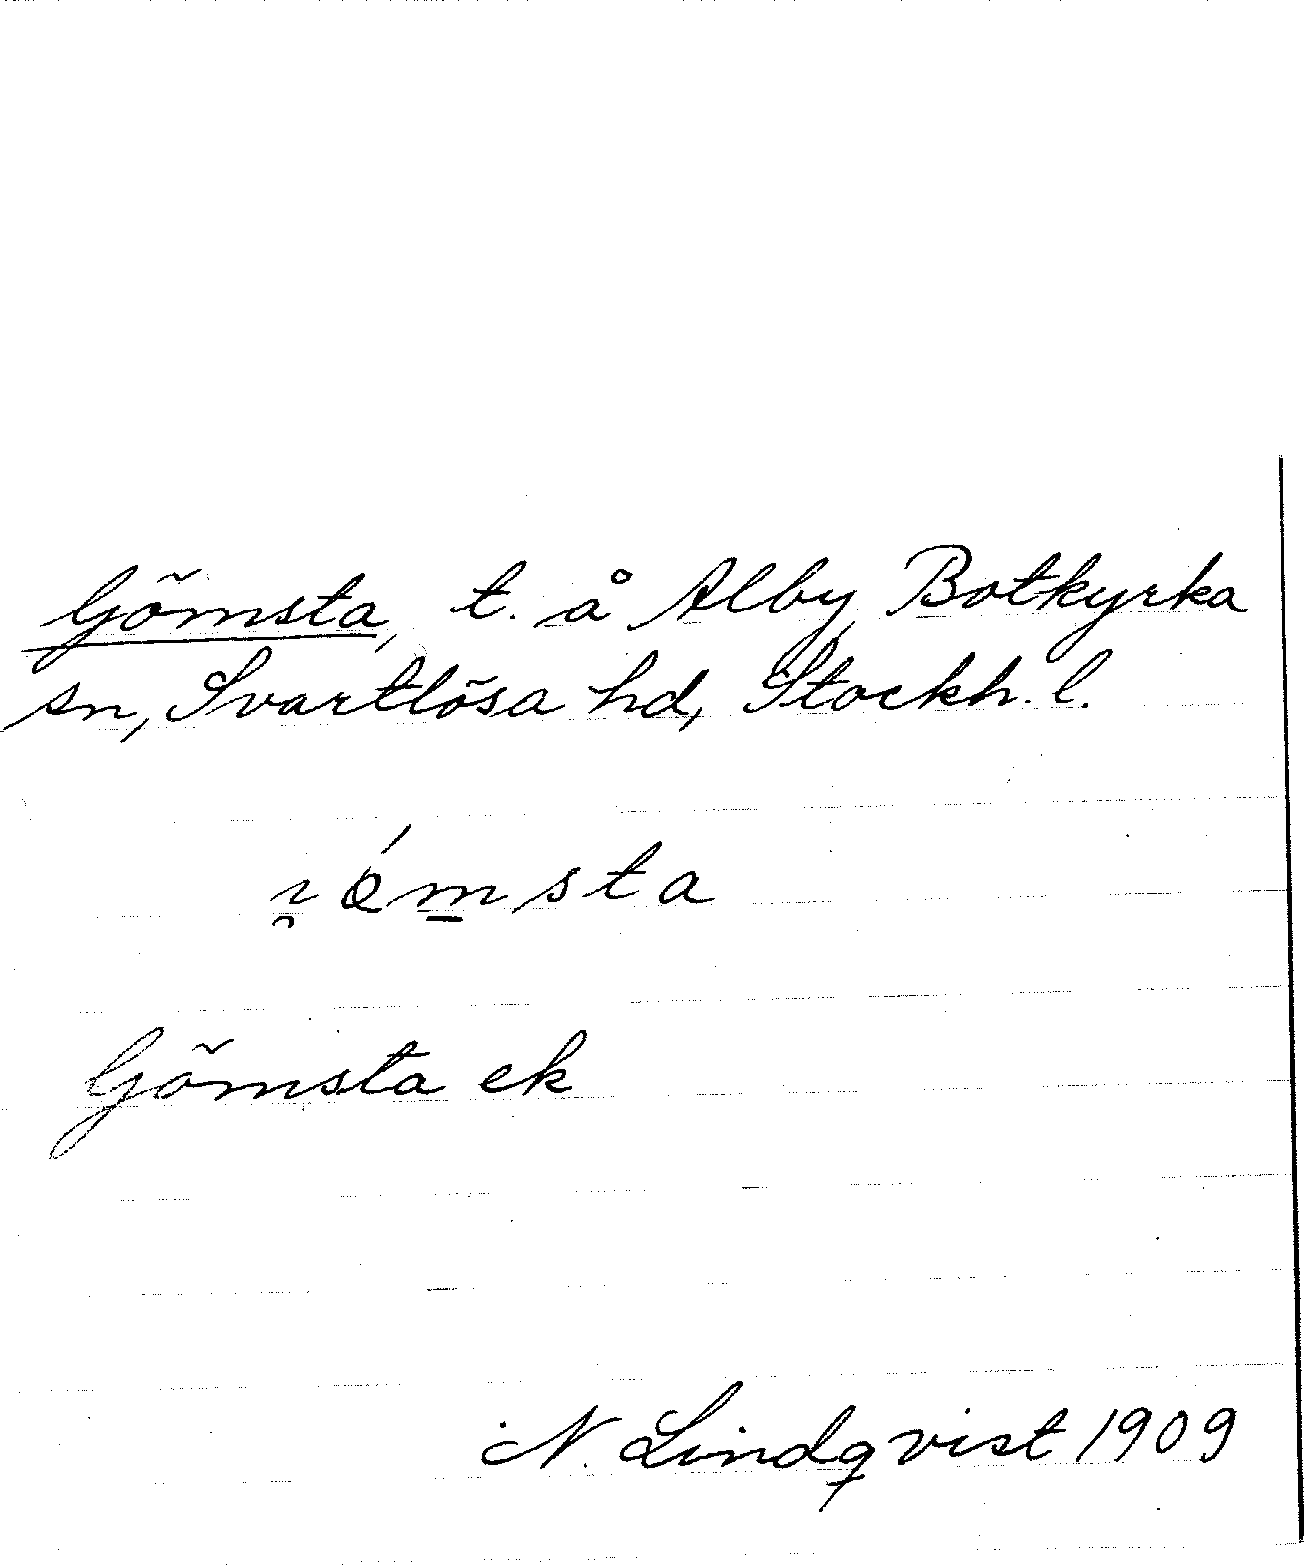 Gömsta, t. å Alby, Botkyrka
sn, Svartlösa hd, Stockh. l.
Gömsta ek
N. Lindqvist 1909